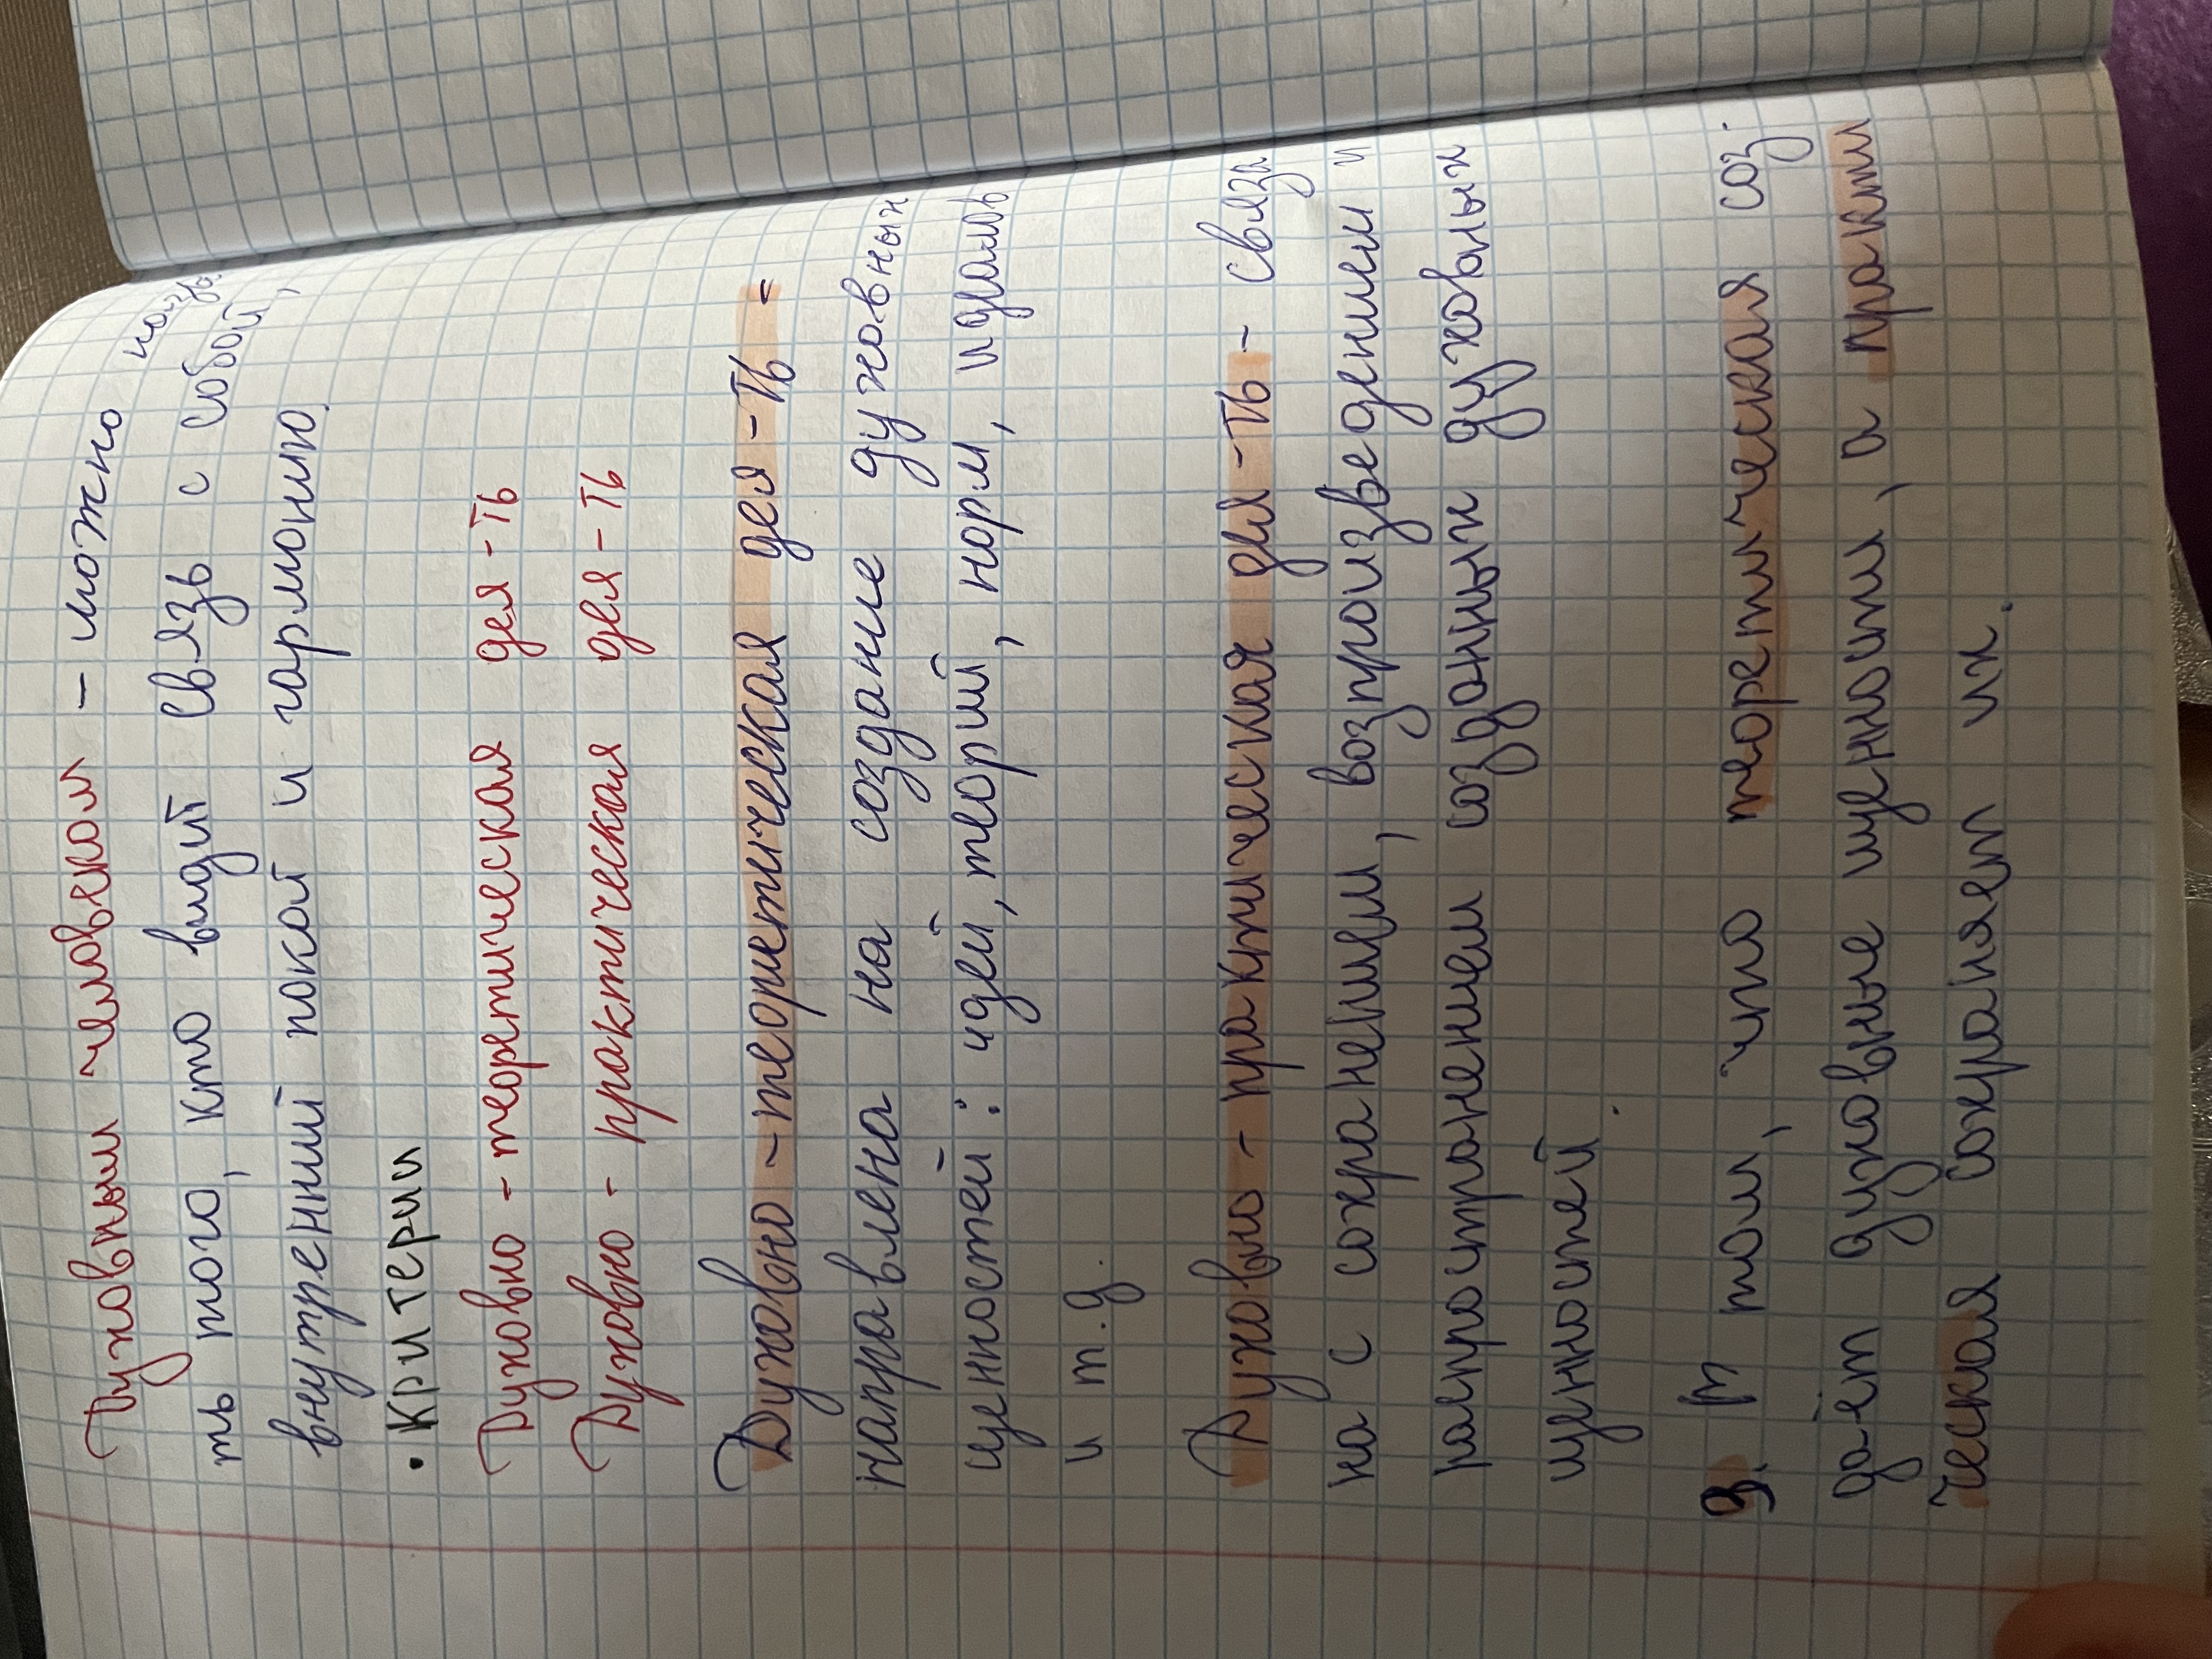 Духовным человеком – можно назва
ть того, кто видит связь с собой,
внутренний покой и гармонию.
• Критерии
Духовно - теоретическая дея-ть
Духовно - практическая дея-ть
Духовно - теоретическая дея-ть =
направлена на создание духовных
ценностей: идей, теорий, норм, идеалов
и т.д.
Духовно - практическая дея-ть – связа
на с сохранением, возпроизведением и
распространением созданных духовных
ценностей.
3. В том, что теоретическая соз-
да-ёт духовные ценности, а практи
ческая сохраняет их.